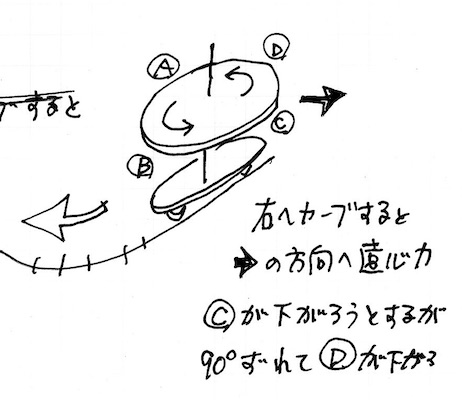 Ⓓ
Ⓐ
ブすると
Ⓒ
Ⓑ
右へカーブすると
➡の方向へ遠心力
Ⓒが下がろうとするが
90°ずれてⒹが下がる